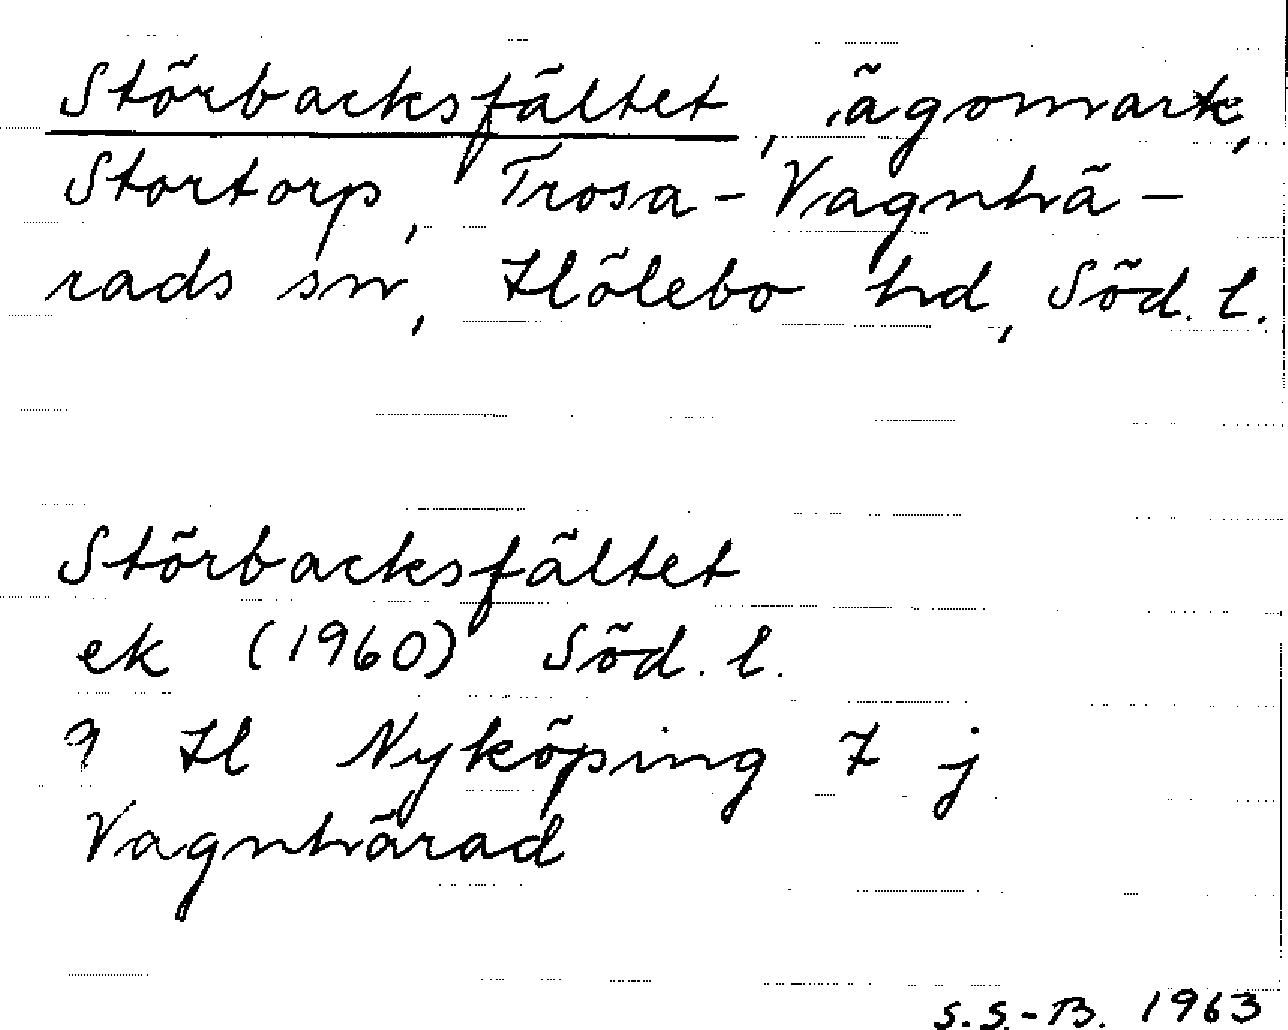 Störbacksfältet, ägomark,
Stortorp, Trosa-Vagnhä-
rads sn, Hölebo hd, Söd. l.
Störbacksfältet
ek (1960) Söd. l.
9 H Nyköping 7 j
Vagnhärad
S.S-B. 1963